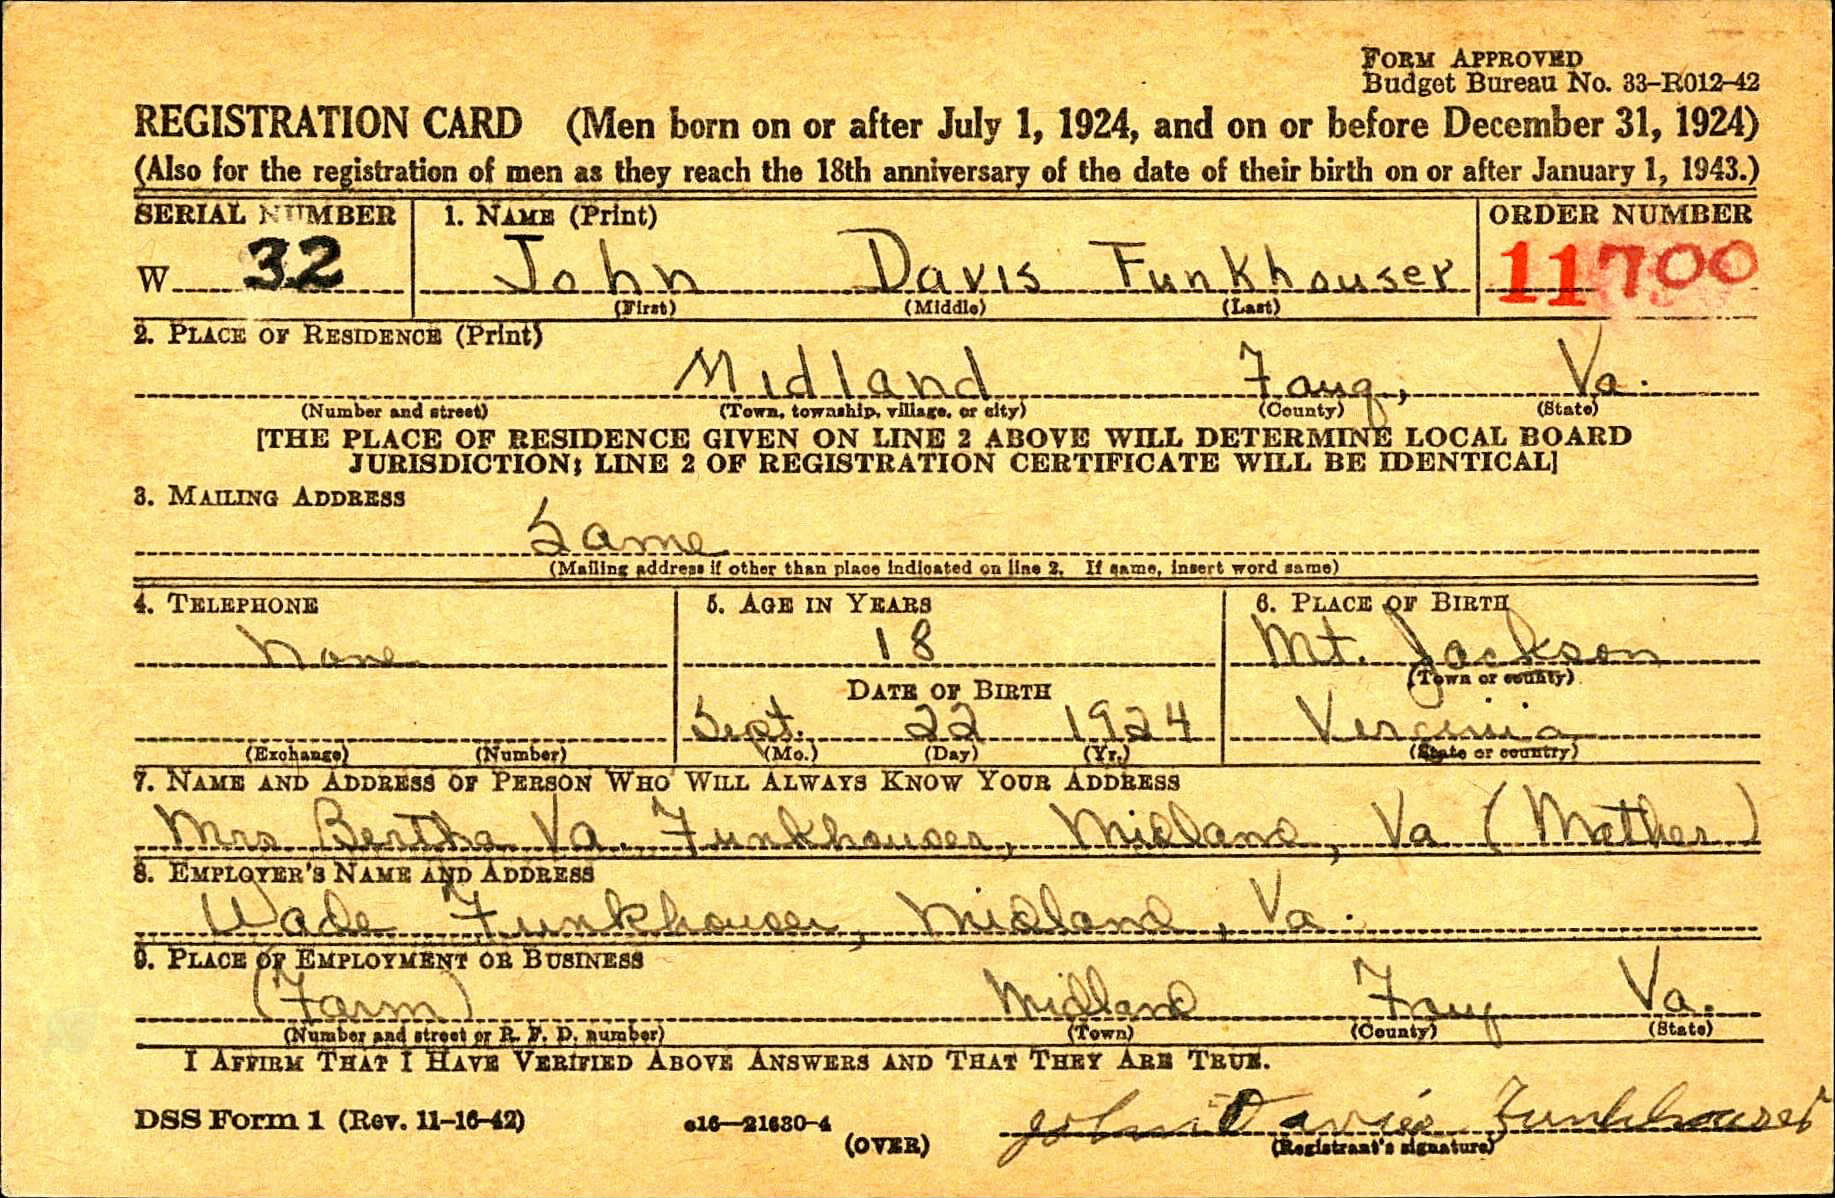 FORM APPROVED
Budget Bureau No. 33-R012-42
REGISTRATION CARD (Men born on or after July 1, 1924, and on or before December 31, 1924)
(Also for the registration of men as they reach the 18th anniversary of the date of their birth on or after January 1, 1943.)
SERIAL NUMBER 1. NAME (Print) ORDER NUMBER
W 32 John Davis Funkhouser 11700
(First) (Middle) (Last)
2. PLACE OF RESIDENCE (Print)
Midland Fauq, Va.
(Number and street) (Town, township, village, or city) (County) (State)
[THE PLACE OF RESIDENCE GIVEN ON LINE 2 ABOVE WILL DETERMINE LOCAL BOARD
JURISDICTION; LINE 2 OF REGISTRATION CERTIFICATE WILL BE IDENTICAL]
3. MAILING ADDRESS
Same
(Mailing address if other than place indicated on line 2. If same, insert word same)
4. TELEPHONE 5. AGE IN YEARS 6. PLACE OF BIRTH
None 18 Mt. Jackson
(Town or county)
DATE OF BIRTH
Sept. 22 1924 Virginia
(Exchange) (Number) (Mo.) (Day) (Yr.) (State or country)
7. NAME AND ADDRESS OF PERSON WHO WILL ALWAYS KNOW YOUR ADDRESS
Mrs Bertha Va. Funkhouser, Midland, Va (Mother)
8. EMPLOYER'S NAME AND ADDRESS
Wade Funkhouser, Midland, Va.
9. PLACE OF EMPLOYMENT OR BUSINESS
(Farm) Midland Fauq Va.
(Number and street or R. F. D. number) (Town) (County) (State)
I AFFIRM THAT I HAVE VERIFIED ABOVE ANSWERS AND THAT THEY ARE TRUE.
DSS Form 1 (Rev. 11-16-42) c16—21630-4 John Davis Funkhouser
(OVER) (Registrant's signature)